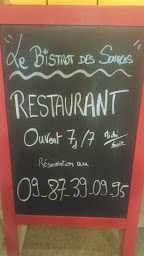 Le Bistrot des Sources
RESTAURANT
Ouvert 7j/7 Midi
Soir
Réservation au
09_87_39_09_95